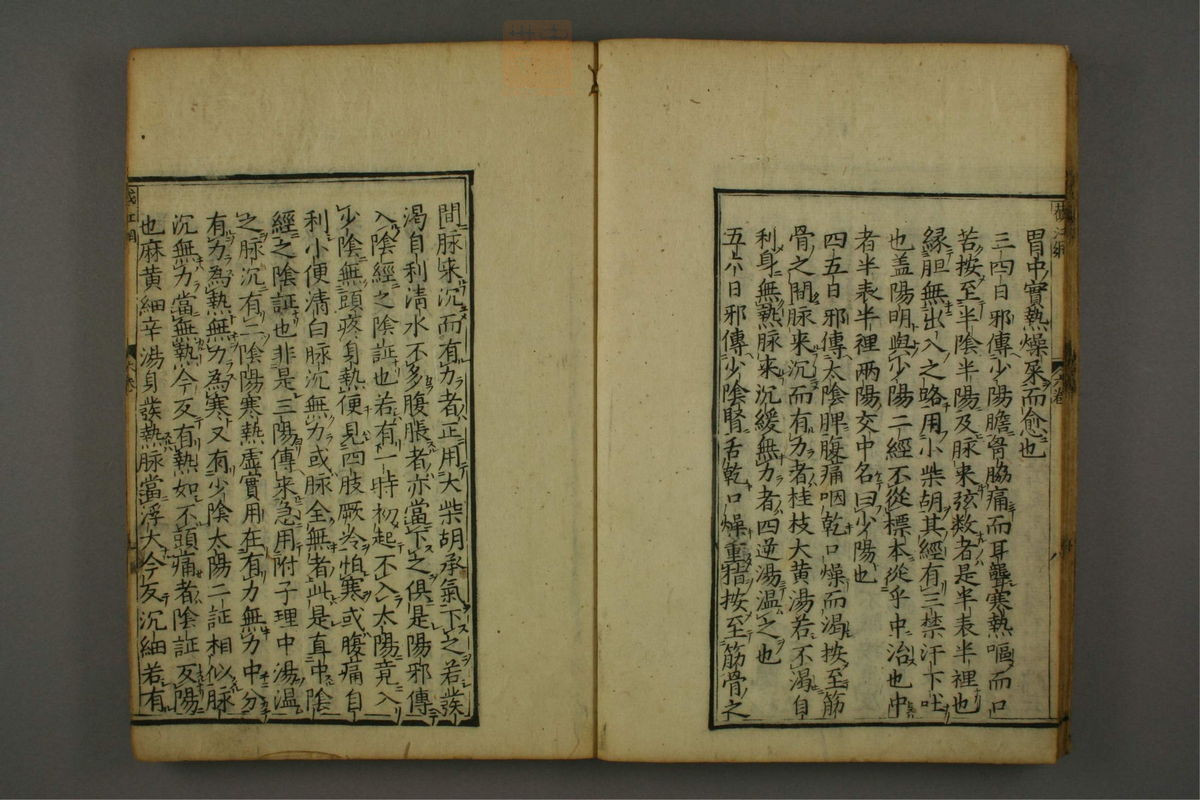 胃中實熱燥屎而愈也
三四日邪傳少陽膽骨脇痛而耳聾寒熱嘔而口
苦按至半陰半陽及脉来弦数者是半表半裡也
縁胆無出入之路用小柴胡其經有三禁汗下吐
也盖陽明與少陽二經不從標本從乎中治也中
者半表半裡兩陽交中名曰少陽也
四五日邪傳太陰脾腹痛咽乾口燥而渴按至筋
骨之間脉来沉而有力者桂枝大黄湯若不渴自
利身無熱脉来沉緩無力者四逆湯温之也
五六日邪傳少陰腎舌乾口燥重指按至筋骨之
間脉来沉而有力者正用大柴胡承氣下之若發
渴自利清水不多腹脹者亦當下之俱是陽邪傳
入陰經之陰証也若有一時初起不入太陽竟入
少陰無頭疼身熱便見四肢厥冷怕寒或腹痛自
利小便清白脉沉無力或脉全無者此是直中陰
經之陰証也非是三陽傳来急用附子理中湯温
之脉沉有二陰陽寒熱虚實用在有力無力中分
有力為熱無力為寒又有少陰太陽二証相似脉
沉無力當無熱今反有熱如不頭痛者陰証反陽
也麻黄細辛湯身發熱脉當浮大今反沉細若有